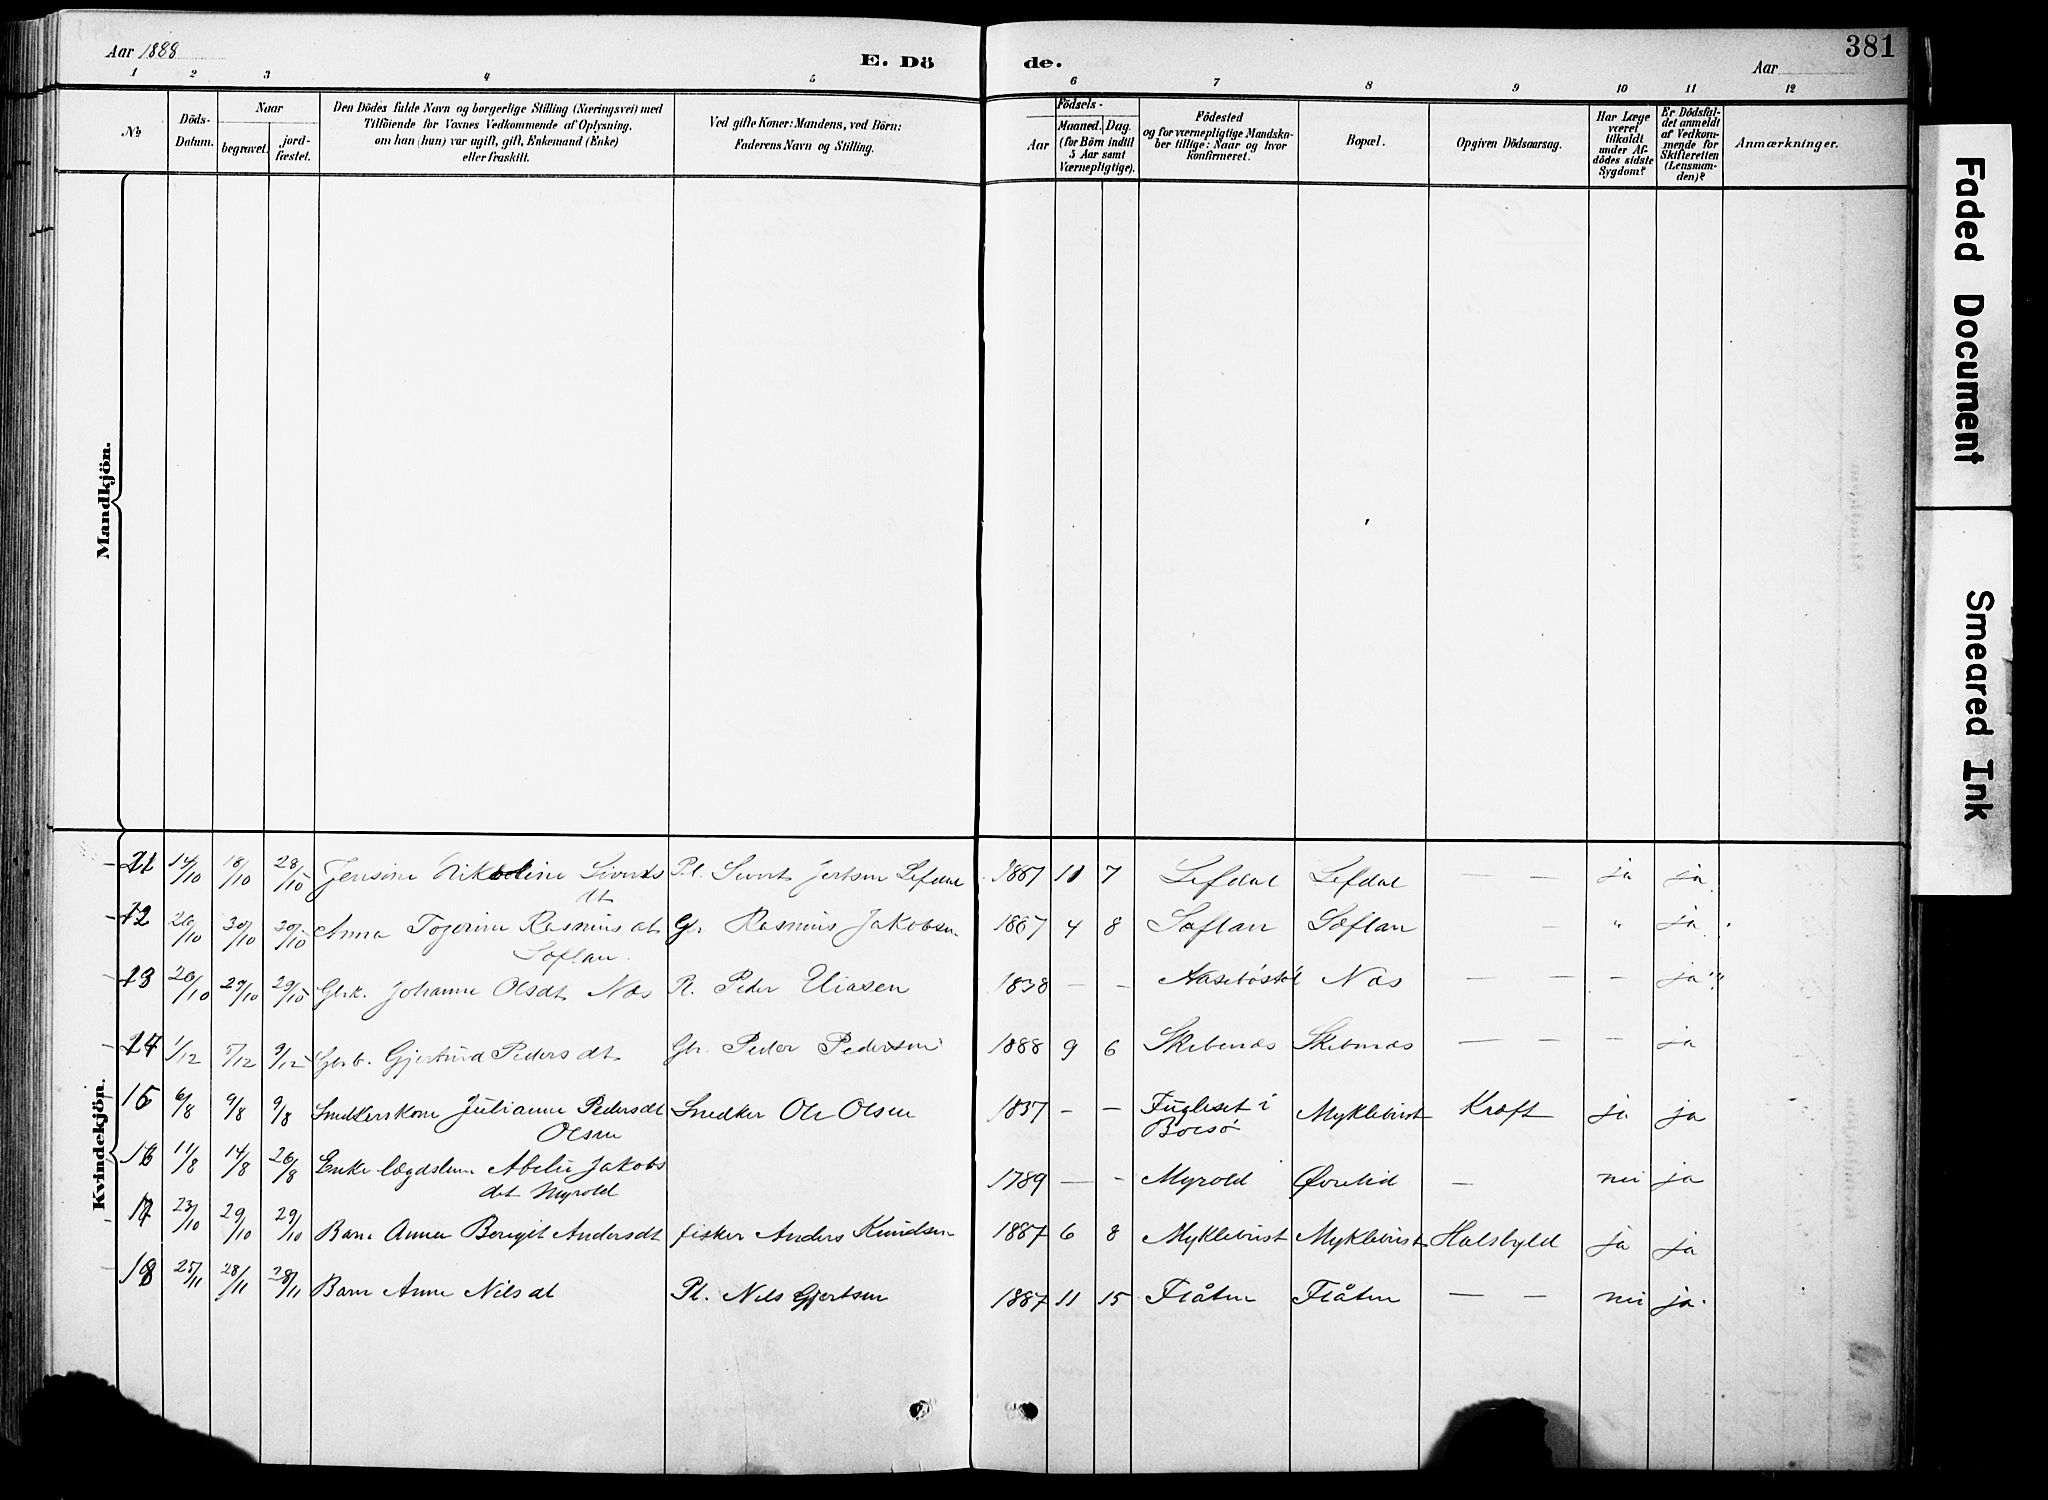 Aar 1888
E. Dö
de.
Aar
381
1 2 3 4 5 6 7 8 9 10 11 12
No
Döds-
Datum.
Naar
begravet.
jord-
fæstet.
Den Dödes fulde Navn og borgerlige Stilling (Næringsvei) med
Tilföiende for Voxnes Vedkommende af Oplysning,
om han (hun) var ugift, gift, Enkemand (Enke)
eller fraskilt.
Ved gifte Koner: Mandens, ved Börn:
Faderens Navn og Stilling.
Födsels-
Aar
Maaned.
Dag.
(for Börn indtil
5 Aar samt
Værnepligtige).
Födested
og for værnepligtige Mandska-
ber tillige: Naar og hvor
konfirmeret.
Bopæl.
Opgiven Dödsaarsag.
Har Læge
været
tilkaldt
under Af-
dödes sidste
Sygdom?
Er Dödsfal-
det anmeldt
af Vedkom-
mende for
Skifteretten
(Lensman-
den)?
Anmærkninger.
Mandkjön.
Kvindekjön.
14/10 18/10 28/10 Jensine Sivertsdt Pl. Sivert Lefdal 11 7 Lefdal Lefdal — — ja ja
12 26/10 30/10 30/10 Anna Rasmusdt Gbr. Rasmus Jakobsen 1867 4 8 Søflan Søflan — " ja
Søflan
13 26/10 29/10 29/10 Gbrk. Johanne Olsdt Næs Peder Eliasen 1838 — — Næs — — — ja
14 1/12 7/12 9/12 Gbrb. Gjertrud Pedersdt Gbr. Peder Pedersen 1888 9 6 Skibenæs Skibenæs — — — ja
15 6/8 9/8 9/8 Snedkerskone Julianne Pedersdt Snedker Ole Olsen 1837 — — Fugleset i Myklebust Kræft ja ja
Olsen
16 11/8 14/8 26/8 Enke lægdslem Abelie Jakobs 1789 — — Myrold Øvrelid — nei ja
dat Myrold
17 23/10 29/10 29/10 Barn Anne Beregit Andersdt fisker Anders Knudsen 1887 6 8 Myklebust Myklebust Halsbyld ja ja
18 25/11 28/11 28/11 Barn Anne Nilsdt Pl. Nils Gjertsen 1887 11 15 Flåten Flåten — — nei ja.
Faded Document
Smeared Ink